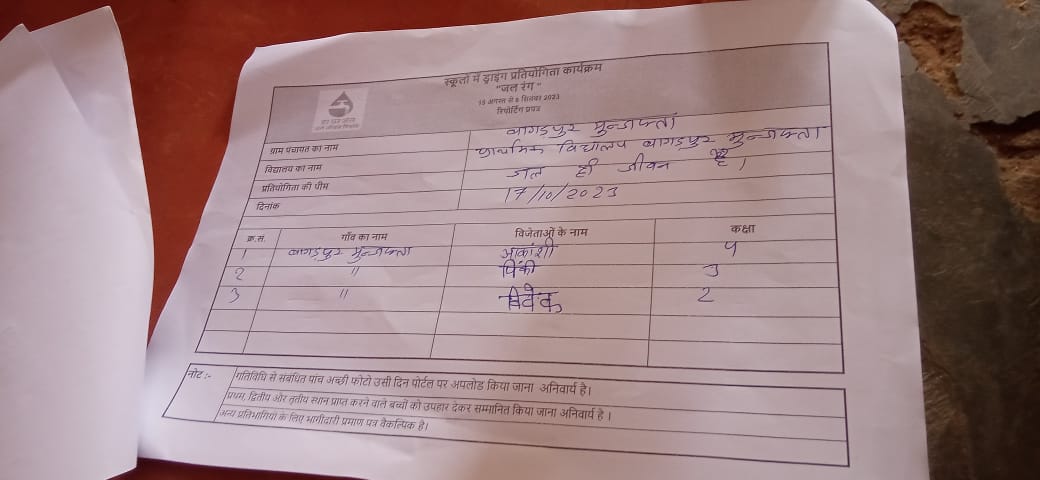 स्कूलों में ड्राइंग प्रतियोगिता कार्यक्रम
"जल रंग"
15 अगस्त से 8 सितंबर 2023
रिपोर्टिंग प्रपत्र
हर घर जल
जल जीवन मिशन
ग्राम पंचायत का नाम बागडपुर मुन्जप्ता
विद्यालय का नाम प्राथमिक विद्यालय बागडपुर मुन्जप्ता
प्रतियोगिता की थीम जल ही जीवन है।
दिनांक 17/10/2023
क्र.सं. गाँव का नाम विजेताओं के नाम कक्षा
1 बागड़पुर मुन्जप्ता आकांशी 4
2 " पिंकी 3
3 " विवेक 2
नोट :- गतिविधि से संबंधित पांच अच्छी फोटो उसी दिन पोर्टल पर अपलोड किया जाना अनिवार्य है।
प्रथम, द्वितीय और तृतीय स्थान प्राप्त करने वाले बच्चों को उपहार देकर सम्मानित किया जाना अनिवार्य है।
अन्य प्रतिभागियों के लिए भागीदारी प्रमाण पत्र वैकल्पिक है।